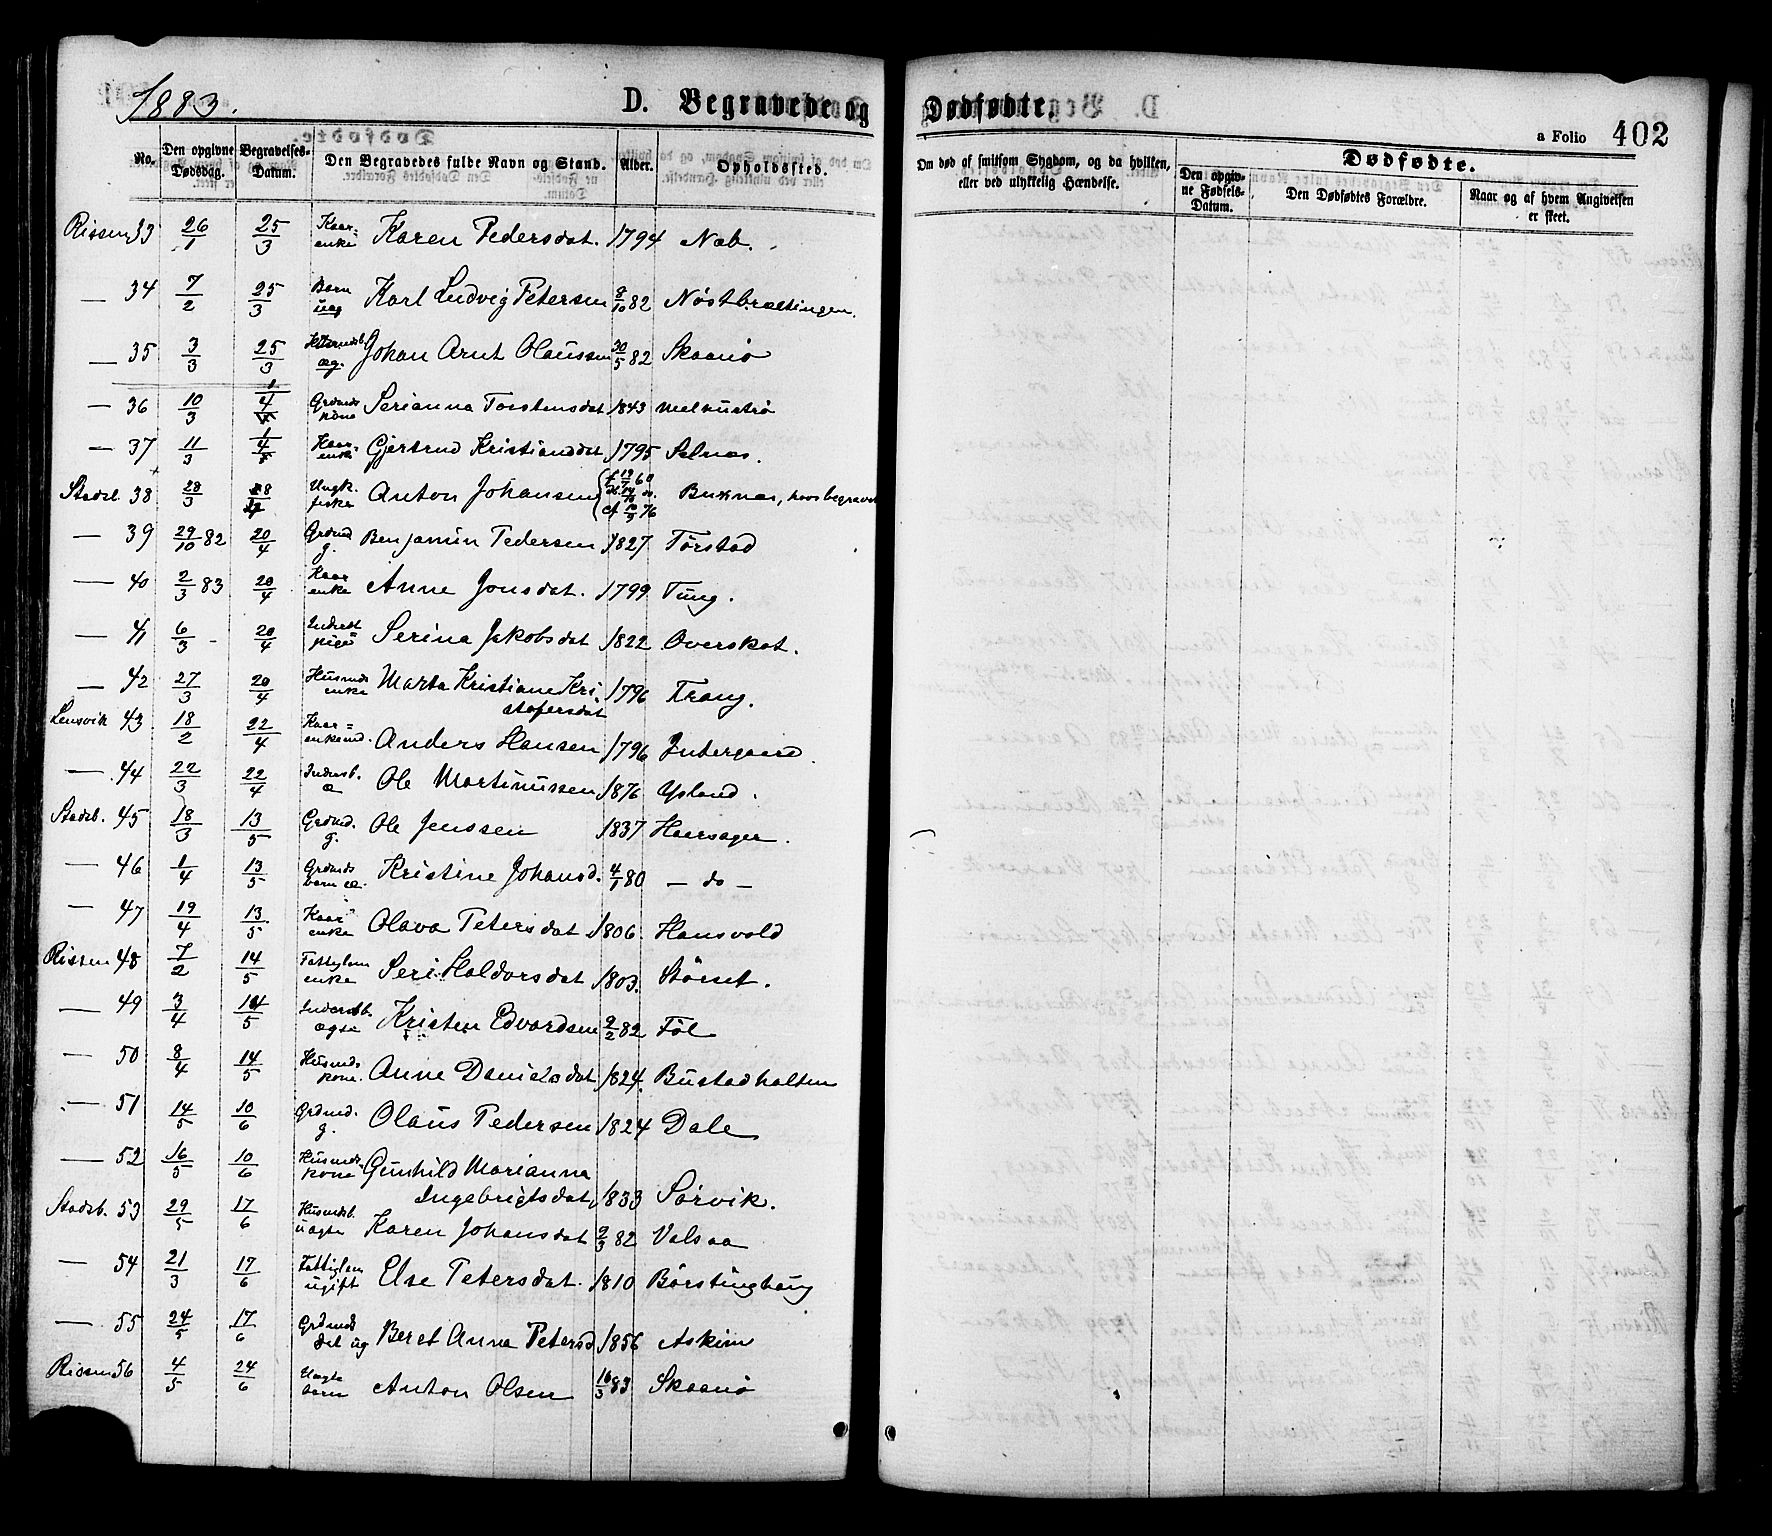 1883.
D. Begravede og Dødfødte.
a Folio 402
No. Den opgivne Dødsdag. Begravelses-Datum. Den Begravedes fulde Navn og Stand. Alder. Opholdssted.
Om død af smitsom Sygdom, og da hvilken, eller ved ulykkelig Hændelse.
Dødfødte.
Den opgivne Fødsels-Datum. Den Dødfødtes Forældre. Naar og af hvem Angivelsen er skeet.
Rissen 33 26/1 25/3 Kaarenke Karen Pedersdat. 1794 Næb.
— 34 7/2 25/3 Barn uæg Karl Ludvig Petersen 8/10 82 Nøstbrættingen.
— 35 3/3 25/3 æg. Johan Arnt Olaussen 30/5 82 Skaanø
— 36 10/3 1/4 Grdmds kone Serianna Torstensdat 1843 Melhustrø
— 37 11/3 1/4 Kaarenke Gjertrud Kristiansdat 1795 Selnæs.
Stadsb. 38 28/3 Ungk. fisker Anton Johansen Buknæs, hvor begravet
— 39 29/10 82 20/4 Grdmd g. Benjamin Pedersen 1827 Tørstad
— 40 2/3 83 20/4 Kaarenke Anne Jonsdat. 1799 Tung.
— 41 6/3 - 20/4 Inderst pige Serina Jakobsdat 1822 Overskot.
— 42 27/3 20/4 Husmds enke Marta Kristiane Kri
stofersdat 1796 Trang.
Lensvik 43 18/2 22/4 Kaarenkemd. Anders Hansen 1796 Indergaard.
— 44 22/3 22/4 Indersb. æ Ole Martinussen 1876 Ysland.
Stadsb. 45 18/3 13/5 Grdmd. g. Ole Jenssen 1837 Haarsager.
— 46 1/4 13/5 Grdmds barn æ. Kristine Johansd. 4/1 80 — do —
— 47 19/4 13/5 Kaarenke Olava Petersdat 1806 Hansvold
Rissen 48 7/2 14/5 Fattiglem enke Seri Haldorsdat 1803. Størset.
— 49 3/4 14/5 Inderstb. ægte Kristen Edvardsen 9/2 82 Føl
— 50 8/4 14/5 Husmds kone. Anne Danielsdat 1824. Bustadhalten
— 51 14/5 10/6 Grdmd. g. Olaus Pedersen 1824 Dale
— 52 16/5 10/6 Husmds kone Gunhild Marianna
Ingebrigtsdat, 1833 Sørvik.
Stadsb. 53 29/5 17/6 Husmdsb. uægte Karen Johansdat 9/3 82 Valsaa
— 54 21/3 17/6 Fattiglem ugift Else Petersdat. 1810 Børstinghaug
— 55 24/5 17/6 Grdmds dat ug Beret Anna Petersd 1856 Askim
Rissen 56 4/5 24/6 Uægte barn Anton Olsen 16/3 83 Skaanø